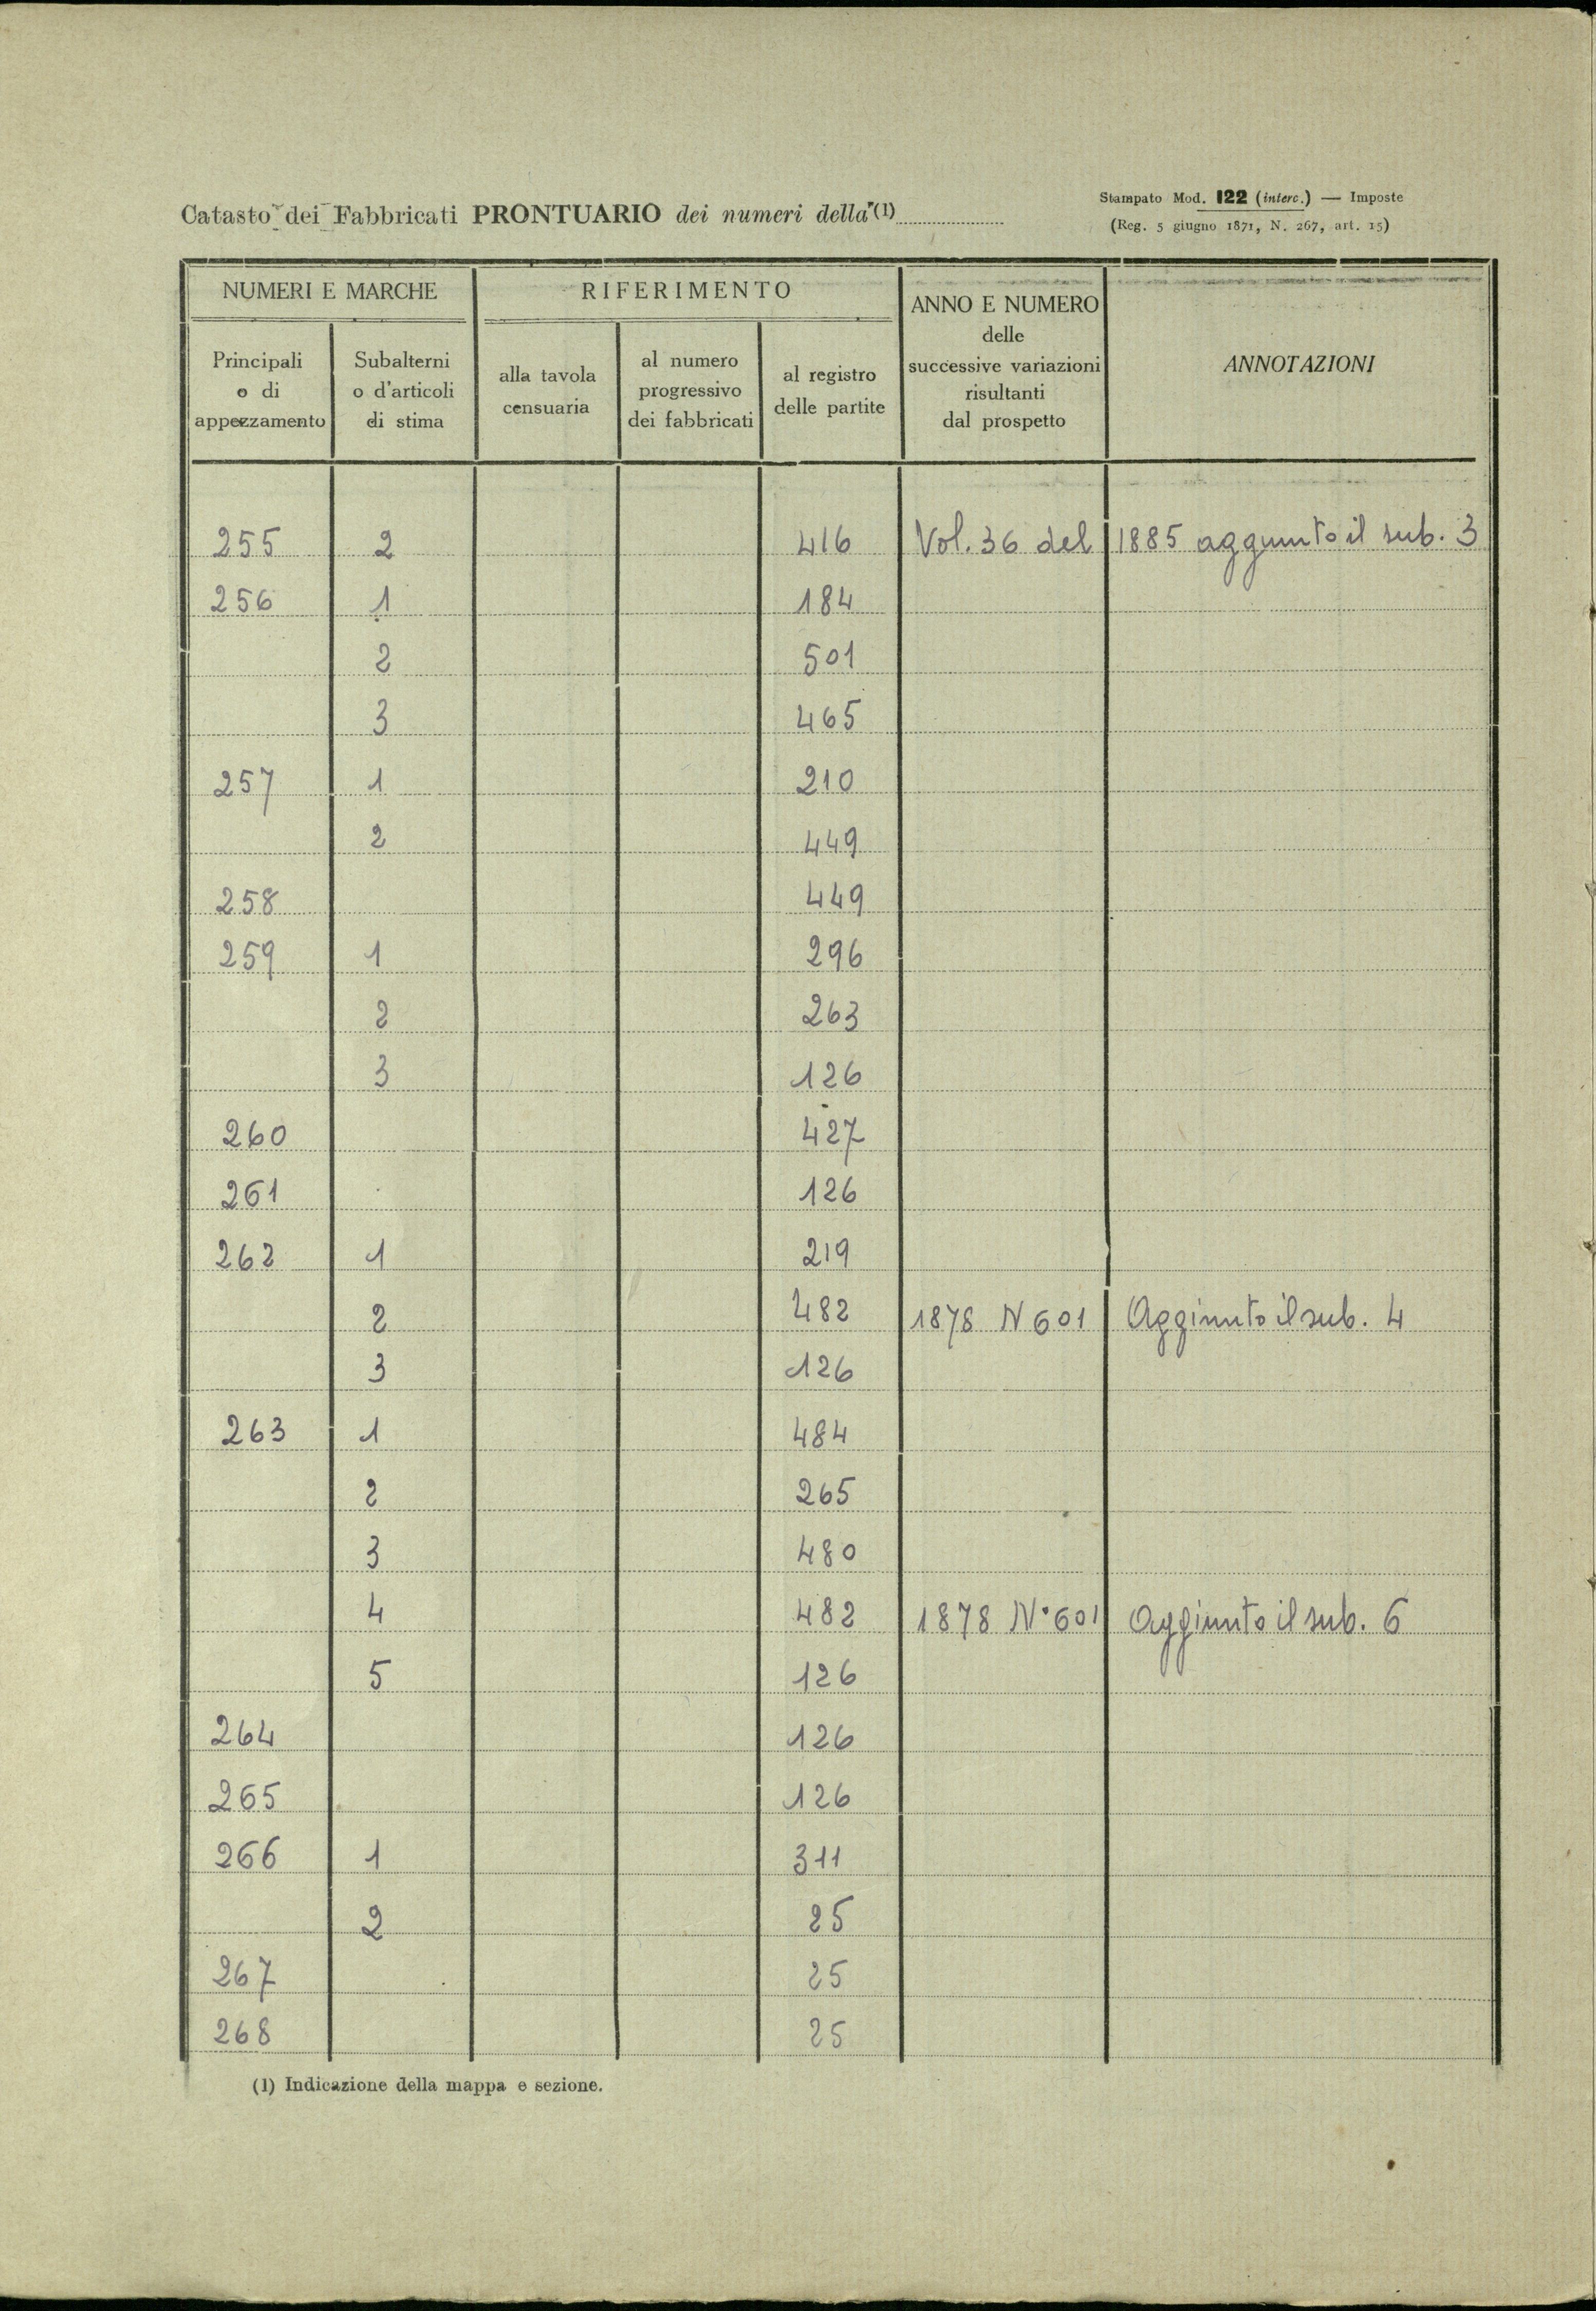 Catasto dei Fabbricati PRONTUARIO dei numeri della (1)
Stampato Mod. 122 (interc.) — Imposte
(Reg. 5 giugno 1871, N. 267, art. 15)
NUMERI E MARCHE
Principali
o di
appezzamento
Subalterni
o d'articoli
di stima
RIFERIMENTO
alla tavola
censuaria
al numero
progressivo
dei fabbricati
al registro
delle partite
ANNO E NUMERO
delle
successive variazioni
risultanti
dal prospetto
ANNOTAZIONI
255 2 416 Vol. 36 del 1885 aggiunto il sub. 3
256 1 184
2 501
3 465
257 1 210
2 449
258 449
259 1 296
2 263
3 126
260 427
261 126
262 1 219
2 482 1878 N 601 Aggiunto il sub. 4
3 126
263 1 484
2 265
3 480
4 482 1878 N° 601 Aggiunto il sub. 6
5 126
264 126
265 126
266 1 311
2 25
267 25
268 25
(1) Indicazione della mappa e sezione.